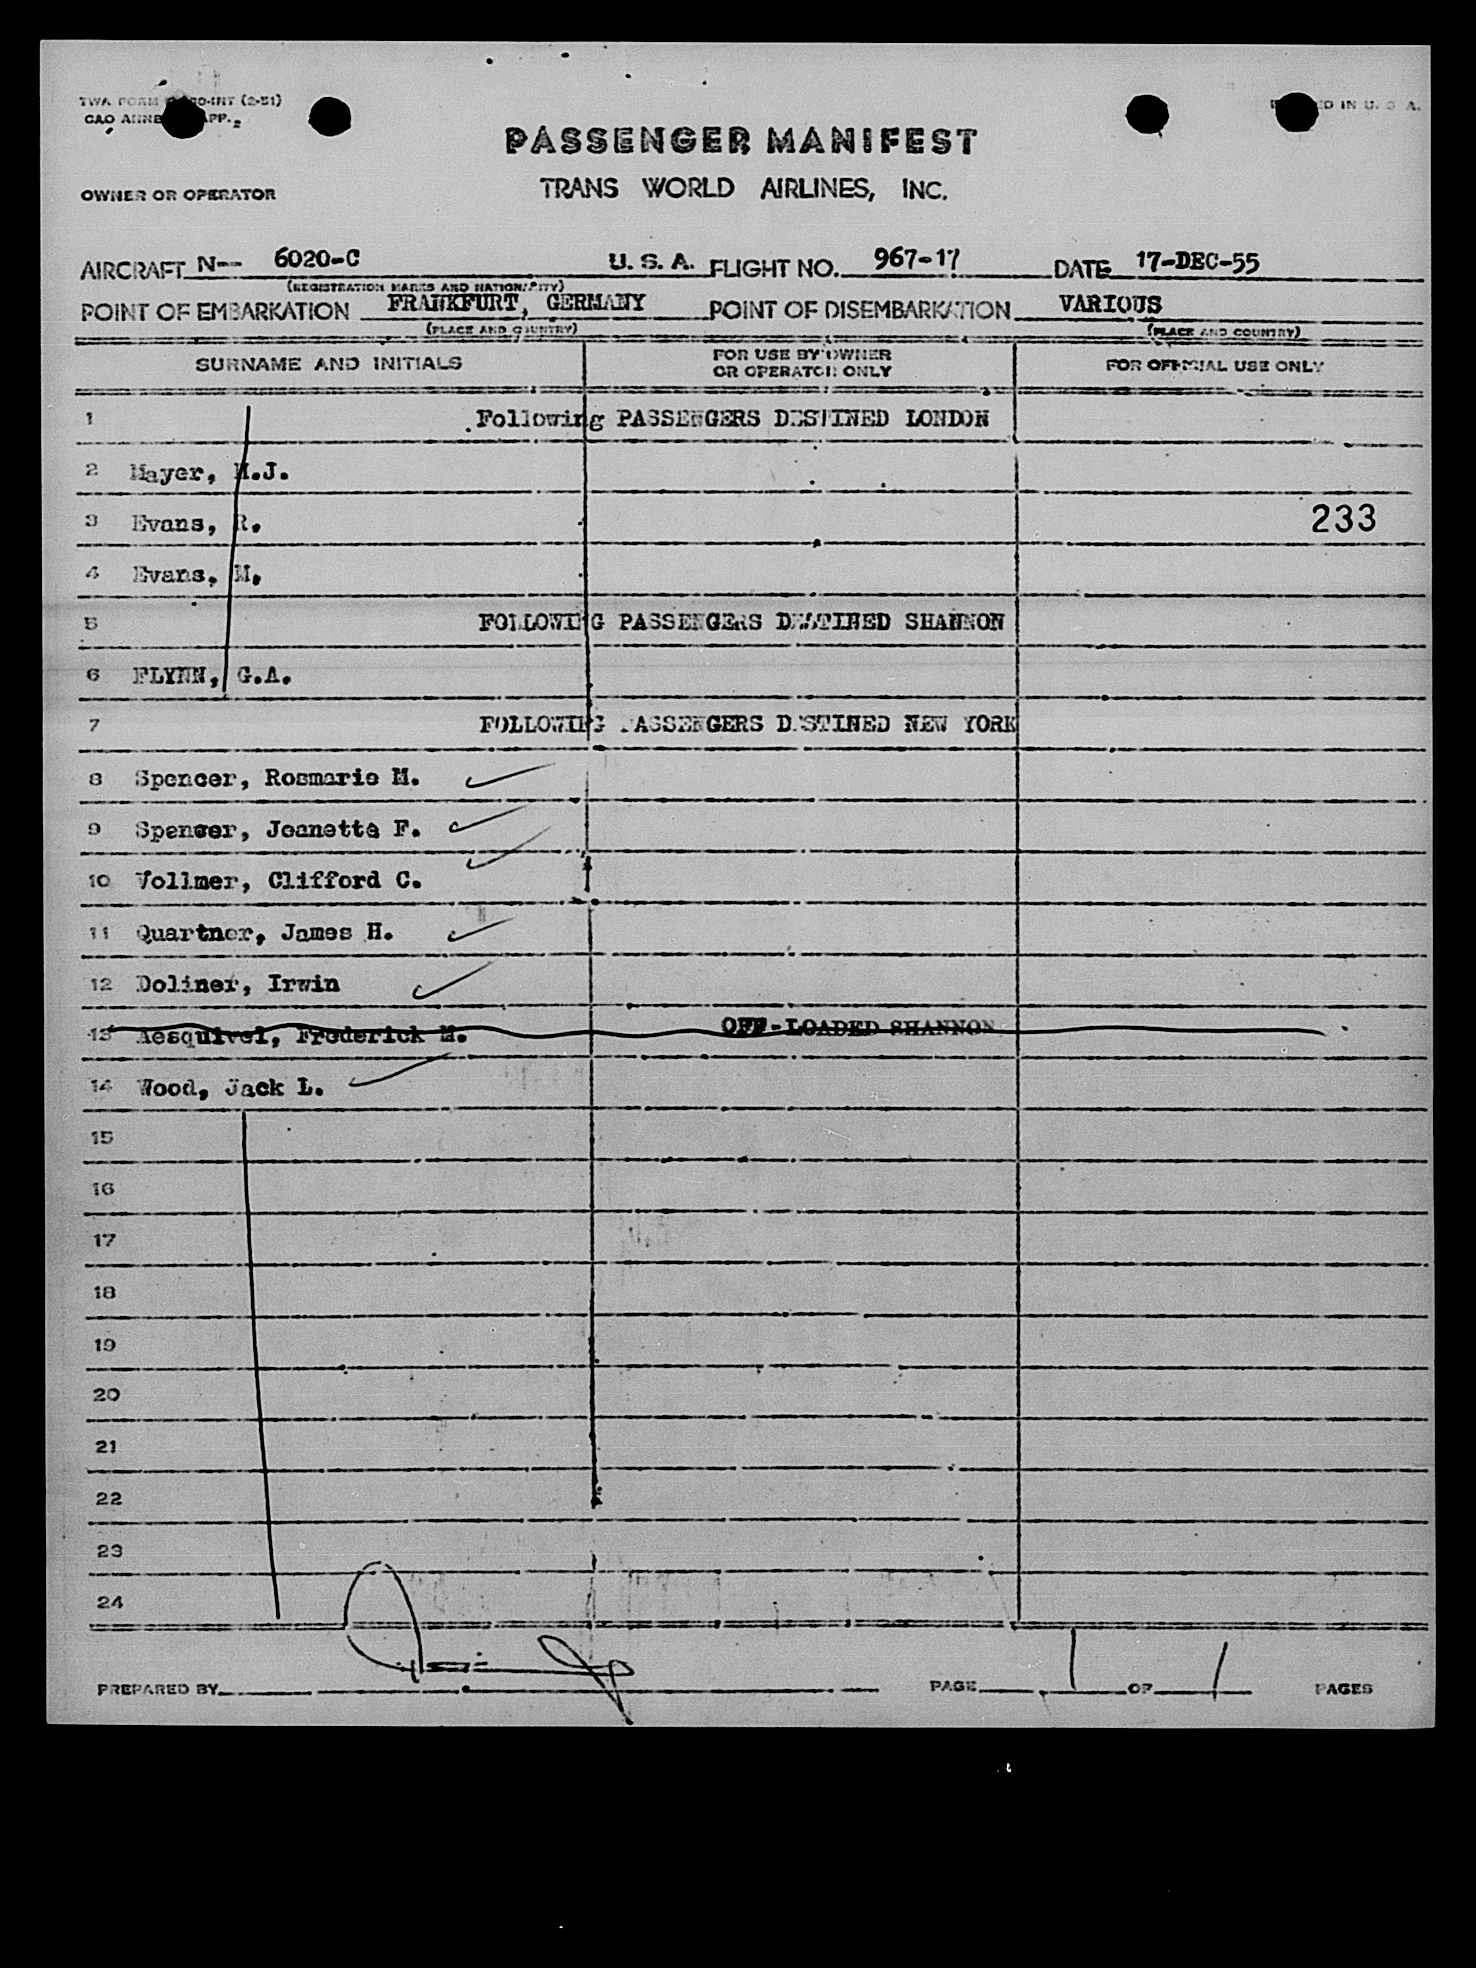 TWA FORM (2-51)
CAO APP. 2
IN U. S. A.
PASSENGER MANIFEST
OWNER OR OPERATOR
TRANS WORLD AIRLINES, INC.
AIRCRAFT N-- 6020-C U. S. A. FLIGHT NO. 967-17 DATE 17-DEC-55
(REGISTRATION MARKS AND NATIONALITY)
POINT OF EMBARKATION FRANKFURT, GERMANY POINT OF DISEMBARKATION VARIOUS
(PLACE AND COUNTRY) (PLACE AND COUNTRY)
SURNAME AND INITIALS FOR USE BY OWNER OR OPERATOR ONLY FOR OFFICIAL USE ONLY
1 Following PASSENGERS DESTINED LONDON
2 Mayer, M.J.
3 Evans, R. 233
4 Evans, M.
5 FOLLOWING PASSENGERS DESTINED SHANNON
6 FLYNN, G.A.
7 FOLLOWING PASSENGERS DESTINED NEW YORK
8 Spencer, Rosmarie M.
9 Spencer, Jeanette F.
10 Vollmer, Clifford C.
11 Quartner, James H.
12 Doliner, Irwin
13 Aesquivel, Frederick M. OFF-LOADED SHANNON
14 Wood, Jack L.
15
16
17
18
19
20
21
22
23
24
PREPARED BY PAGE 1 OF 1 PAGES